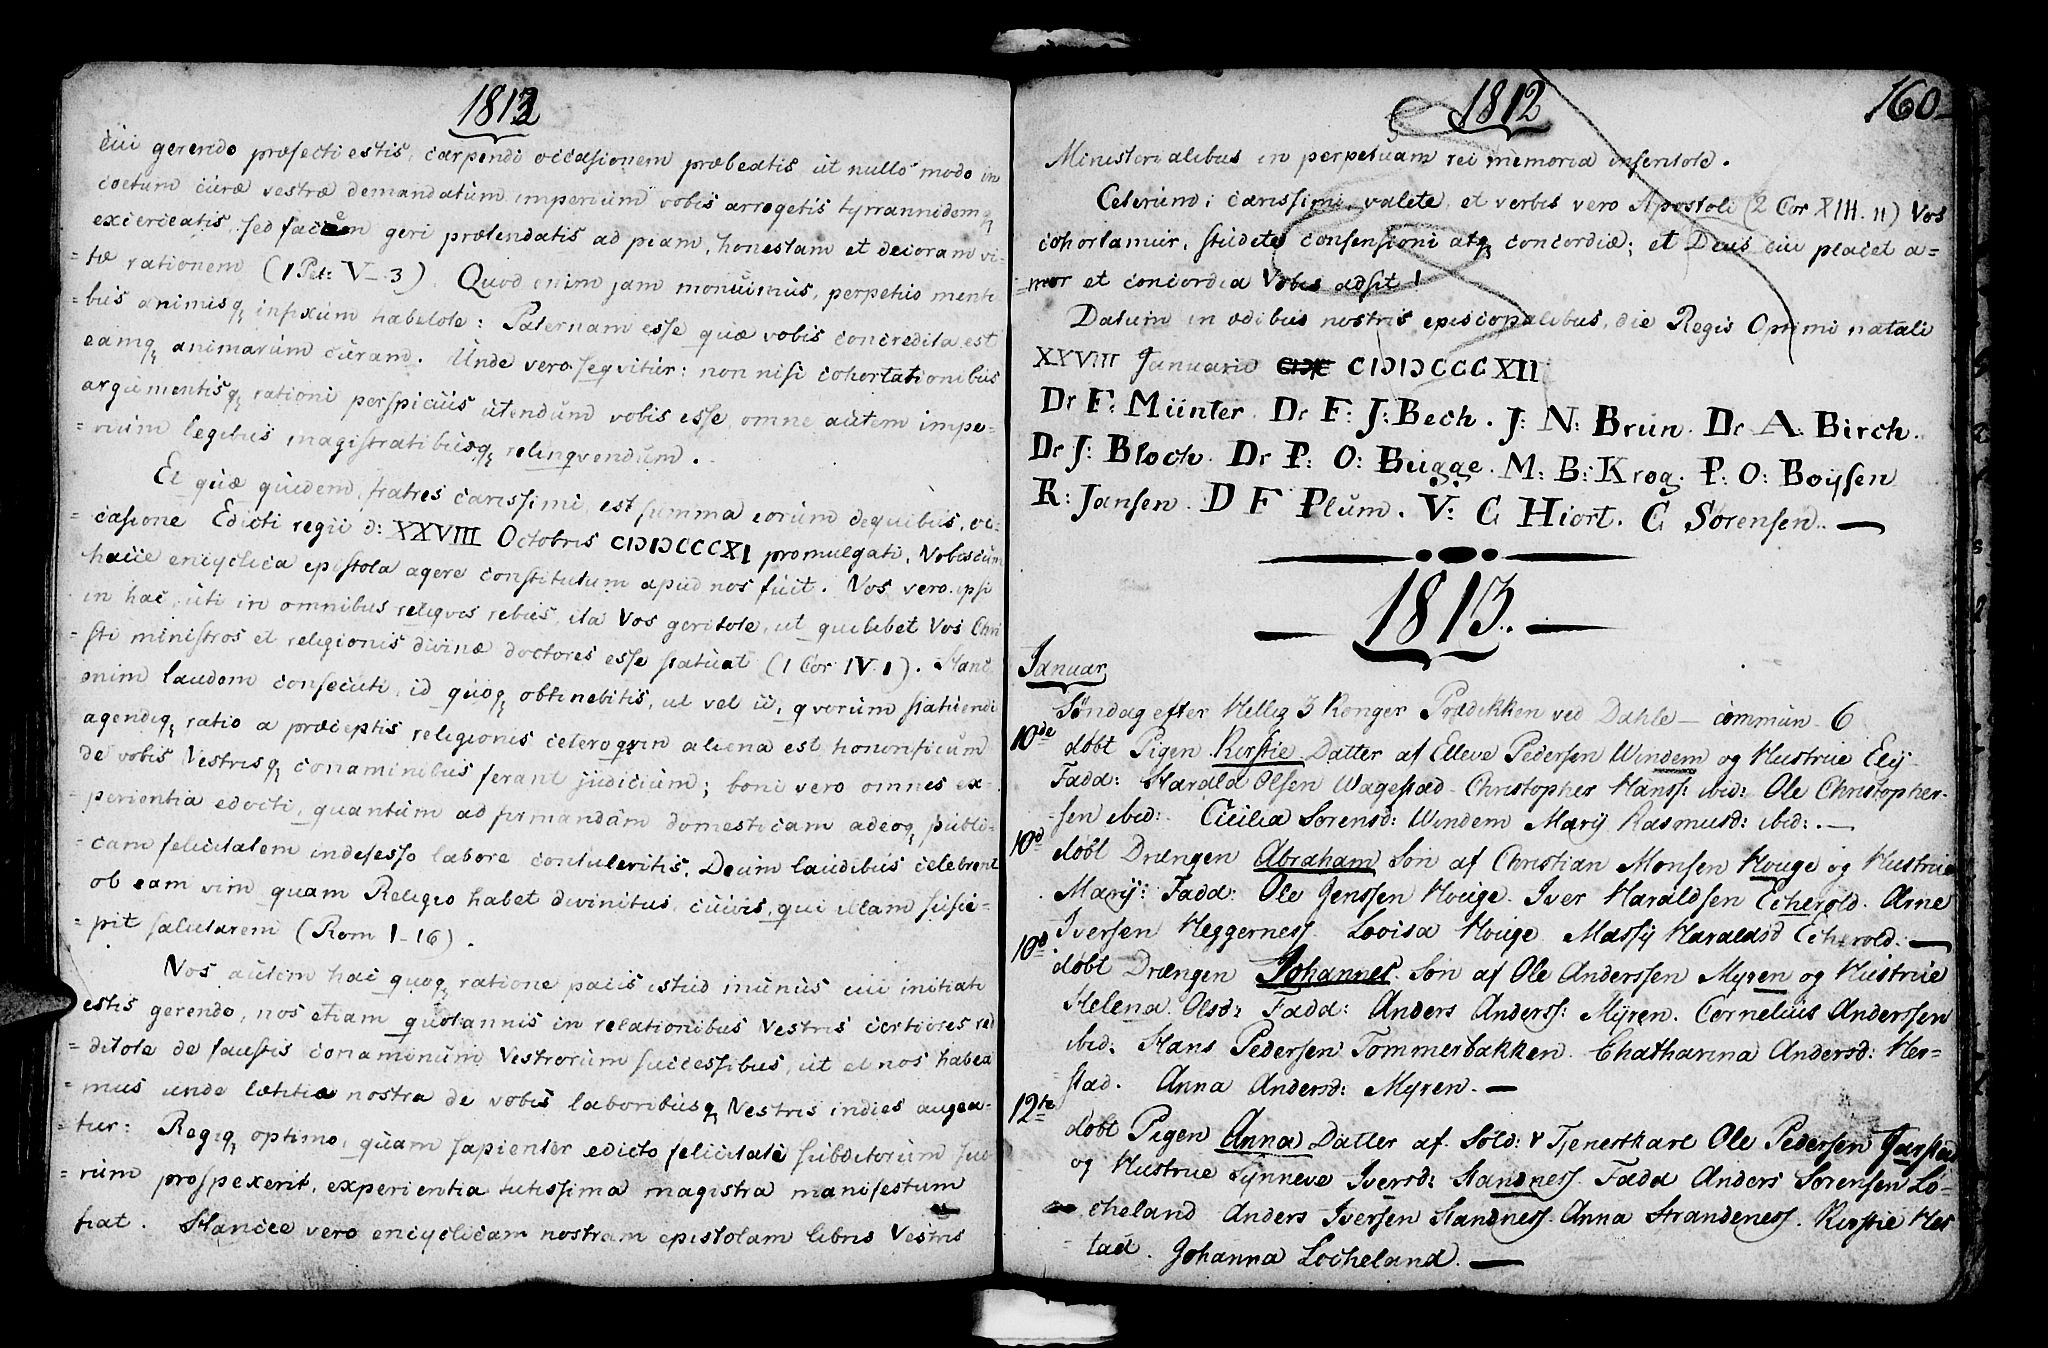 1812
cui gerendo præfecti estis, carpendi occasionem præbeatis ut nullo modo in
coetum curæ vestræ demandatum imperium vobis arrogetis tyrrannidemq
excerceatis, sed faciem geri prætendatis ad piam, honestam et decoram vi-
-tæ rationem (1 Pet: V-3). Quod enim jam monuimus, perpetuo menti
-bus animisq infixum habetote: Paternam esse quæ vobis concredita est
eamq animarum curam. Unde vero seqvitur: non nisi cohortationibus
argumentisq rationi perspicuis utendum vobis esse, omne autem impe-
-rium legibus magistratibusq relinqvendum.
Et quæ quidem, fratres carissimi, est summa eorum de quibus, oc-
-casione Edicti regii d: XXVIII Octobris CIƆIƆCCCXI promulgati, Vobiscum
hacce encyclica epistola agere constitutum apud nos fuit. Vos vero ipsi
in hac, uti in omnibus reliqvis rebus, ita Vos geritote, ut quilibet Vos Chri
-sti ministros et religionis divinæ doctores esse statuat (1 Cor IV.1). Hanc
enim laudem consecuti, id quoq obtinebitis, ut vel ii, qvorum statuendi
agendiq ratio a præceptis religionis ceteroqvin aliena est honorificum
de vobis Vestrisq conaminibus ferant judicium; boni vero omnes ex-
-perientia edocti, quantum ad firmandam domesticam adeoq publi-
-cam felicitatem indefesso labore contuleritis, Deum laudibus celebrent
ob eam vim quam Religio habet divinitus, cuivis, qui illam susci-
-pit salutarem (Rom 1-16).
Nos autem hac quoq ratione pacis istud munus cui initiati
estis gerendo, nos etiam quotannis in relationibus Vestris certiores red
-ditote de faustis conaminum Vestrorum successibus, ut et nos habea
-mus unde lætitia nostra de vobis laboribusq Vestris indies augea-
-tur: Regiq optimo, quam sapienter edicto felicitati subditorum suo
-rum prospexerit, experientia tutissima magistra manifestum
fiat. Hancce vero encyclicam nostram epistolam libris Vestris
1812
160
Ministerialibus in perpetuam rei memoria inseritote.
Ceterum: carissimi, valete, et verbis vero Apostoli (2 Cor XIII. 11) Vos
cohortamur, studete consensioni atq concordiæ; et Deus cui placet a-
-mor et concordia Vobis adsit!
Datum in ædibus nostris episcopalibus, die Regis Optimi natali
XXVIII Januarii CIƆIƆCCCXII
Dr F: Münter. Dr F: J: Bech. J: N: Brun. Dr A: Birch.
Dr J: Bloch. Dr P: O: Bugge. M: B: Krog. P: O: Boysen
R: Jansen. D F Plum. V: C Hiort. C Sørensen.
1813.
Januar
Søndag efter Hellig 3 Konger Prædikken ved Dahle - commun - 6
10de døbt Pigen Kirstie Datter af Elleve Pedersen Windem og Hustrue Elij
Fadd: Harald Olsen Wagestad - Christopher Hanss: ibid: Ole Christopher-
-sen ibid: Cicilia Sorensd: Windem Marij Rasmusd: ibid:.
10d døbt Drængen Abraham Søn af Christian Monsen Houge og Hustrue
Marij: Fadd: Ole Jenssen Houge. Iver Haraldsen Echerold. Arne
Iversen Heggerness. Lovisa Houge. Massij Haraldsd Echerold.
10d døbt Drængen Johannes Søn af Ole Anderssen Myren og Hustrue
Helena Olsd: Fadd: Anders Anderss: Myren. Cornelius Anderssen
ibid: Hans Pedersen Tommerbakken. Chatharina Andersd: Her-
-stad. Anna Andersd: Myren.
12te døbt Pigen Anna Datter af Sold: & Tjenestkarl Ole Pedersen Jarstad
og Hustrue Synneve Iversd: Handness. Fadd Anders Sørensen Lo-
cheland Anders Iversen Handness. Anna Strandeness. Kirstie Hes
-tad. Johanna Locheland.